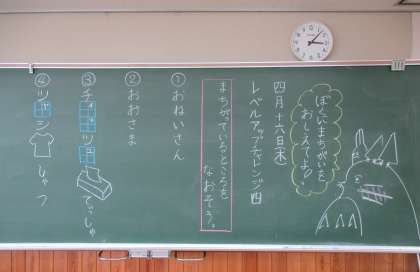 ぼくにまちがいを
おしえてよ。
四月十六日(木)
レベルアップチャレンジ四
まちがっているところを
なおそう。
①おねいさん
②おおさま
③チィッツュ てっしゅ
④ツャシ しゃつ